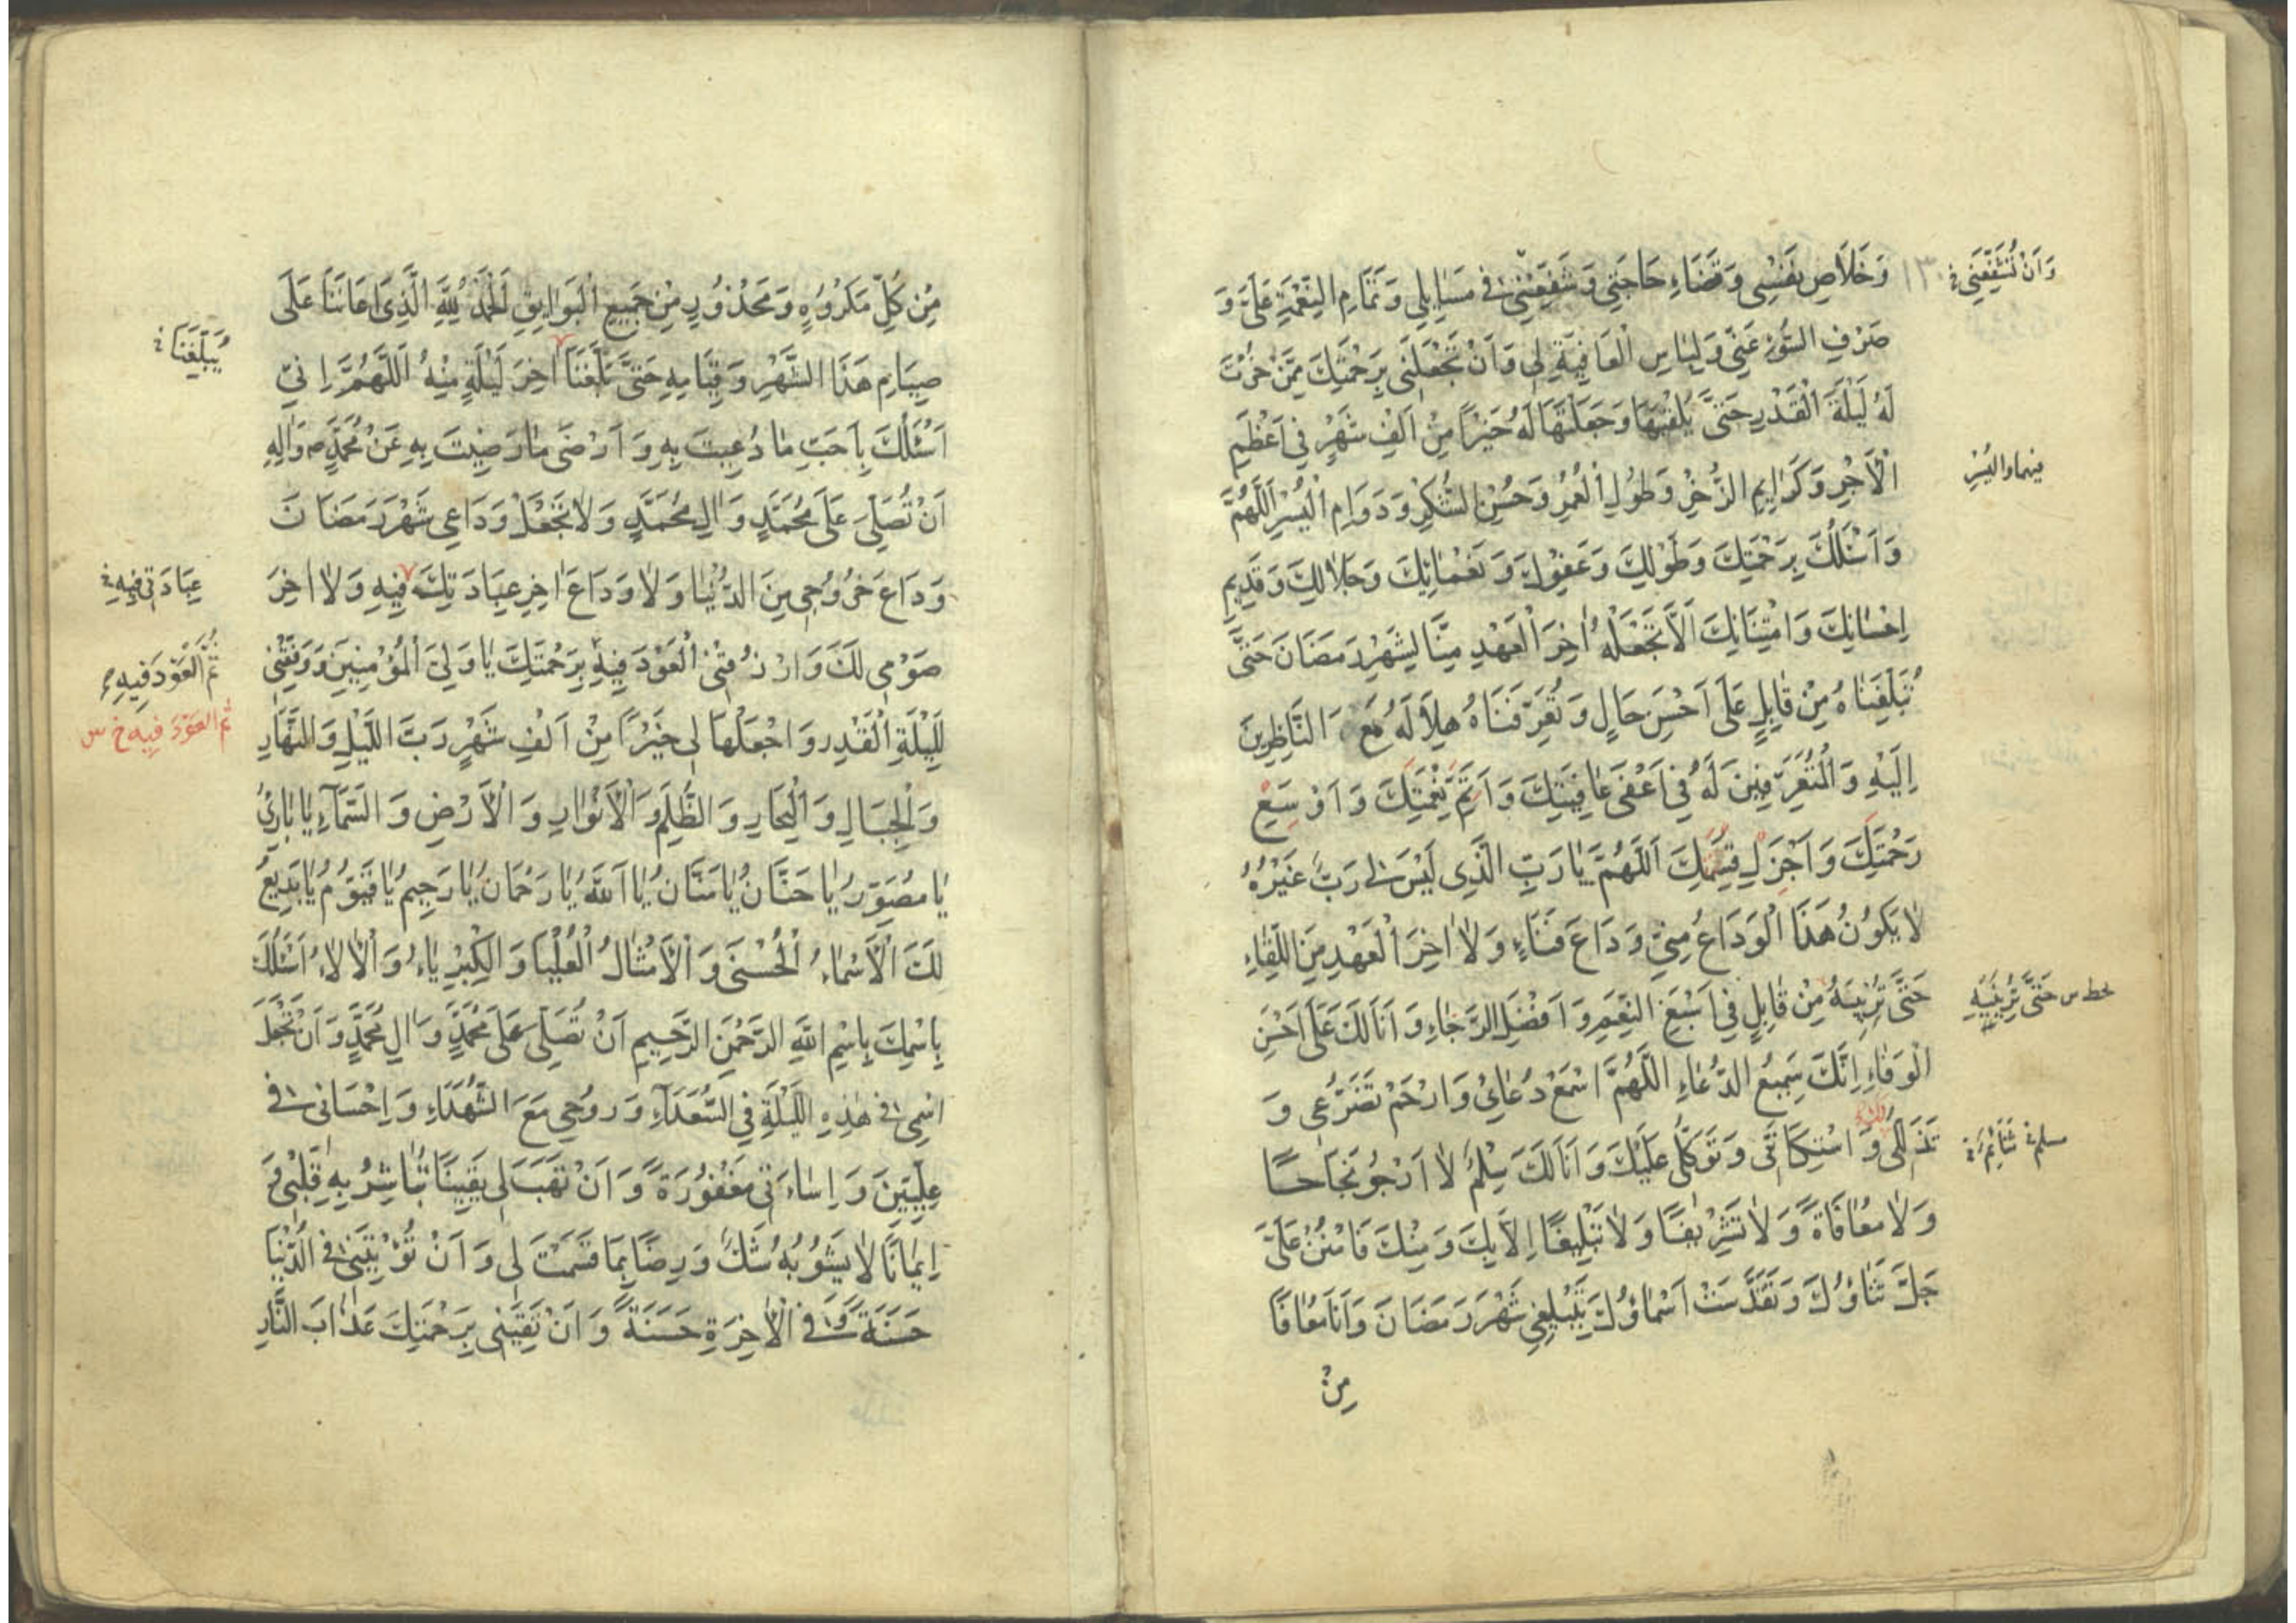 وَاَنْ تُشَفِّعَنِي خ
١٣٠
وَخَلَاصِ نَفْسِي وَقَضَاءِ حَاجَتِي وَتَشْفِيعِي فِي مَسَايِلِي وَتَمَامِ النِّعْمَةِ عَلَيَّ وَ
صَرْفِ السُّوءِ عَنِّي وَلِبَاسِ الْعَافِيَةِ لِي وَاَنْ تَجْعَلَنِي بِرَحْمَتِكَ مِمَّنْ خِرْتَ
لَهُ لَيْلَةَ الْقَدْرِ حَتَّى يُلَقَّيهَا وَجَعَلْتَهَا لَهُ خَيْرًا مِنْ اَلْفِ شَهْرٍ فِي اَعْظَمِ
الْاَجْرِ وَكَرَايِمِ الذُّخْرِ وَطُولِ الْعُمْرِ وَحُسْنِ الشُّكْرِ وَدَوَامِ الْيُسْرِ اَللّٰهُمَّ
وَاَسْئَلُكَ بِرَحْمَتِكَ وَطَوْلِكَ وَعَفْوِكَ وَنَعْمَائِكَ وَجَلَالِكَ وَقَدِيمِ
اِحْسَانِكَ وَامْتِنَانِكَ اَلَّا تَجْعَلَهُ اٰخِرَ الْعَهْدِ مِنَّا لِشَهْرِ رَمَضَانَ حَتَّى
تُبَلِّغَنَاهُ مِنْ قَابِلٍ عَلَى اَحْسَنِ حَالٍ وَتُعَرِّفَنَاهُ هِلَالَهُ مَعَ النَّاظِرِينَ
اِلَيْهِ وَالْمُتَعَرِّفِينَ لَهُ فِي اَعْفَى عَافِيَتِكَ وَاَتَمِّ نِعْمَتِكَ وَاَوْسَعِ
رَحْمَتِكَ وَاَجْزَلِ قِسَمِكَ اَللّٰهُمَّ يَا رَبِّ الَّذِي لَيْسَ لِي رَبٌّ غَيْرُهُ
لَا يَكُونُ هَذَا الْوَدَاعُ مِنِّي وَدَاعَ فَنَاءٍ وَلَا اٰخِرَ الْعَهْدِ مِنَ اللِّقَاءِ
حَتَّى تُرِيَنِيهِ مِنْ قَابِلٍ فِي اَسْبَغِ النِّعَمِ وَاَفْضَلِ الرَّجَاءِ وَاَنَا لَكَ عَلَى اَحْسَنِ
الْوَفَاءِ اِنَّكَ سَمِيعُ الدُّعَاءِ اَللّٰهُمَّ اسْمَعْ دُعَائِي وَارْحَمْ تَضَرُّعِي وَ
تَذَلُّلِي لَكَ وَاسْتِكَانَتِي وَتَوَكُّلِي عَلَيْكَ وَاَنَا لَكَ سِلْمٌ لَا اَرْجُو نَجَاحًا
وَلَا مُعَافَاةً وَلَا تَشْرِيفًا وَلَا تَبْلِيغًا اِلَّا بِكَ وَمِنْكَ فَامْنُنْ عَلَيَّ
جَلَّ ثَنَاؤُكَ وَتَقَدَّسَتْ اَسْمَاؤُكَ بِتَبْلِيغِي شَهْرَ رَمَضَانَ وَاَنَا مُعَافًا
مِنْ
حَتَّى تُرِيَنِيهِ
مِنْ كُلِّ مَكْرُوهٍ وَمَحْذُورٍ مِنْ جَمِيعِ الْبَوَايِقِ اَلْحَمْدُ لِلّٰهِ الَّذِي اَعَانَنَا عَلَى
صِيَامِ هَذَا الشَّهْرِ وَقِيَامِهِ حَتَّى بَلَّغَنَا اٰخِرَ لَيْلَةٍ مِنْهُ اَللّٰهُمَّ اِنِّي
اَسْئَلُكَ بِاَحَبِّ مَا دُعِيتَ بِهِ وَاَرْضَى مَا رَضِيتَ بِهِ عَنْ مُحَمَّدٍ ص وَاٰلِهِ
اَنْ تُصَلِّيَ عَلَى مُحَمَّدٍ وَاٰلِ مُحَمَّدٍ وَلَا تَجْعَلْ وَدَاعِي شَهْرَ رَمَضَانَ
وَدَاعَ خُرُوجِي مِنَ الدُّنْيَا وَلَا وَدَاعَ اٰخِرِ عِبَادَتِكَ فِيهِ وَلَا اٰخِرَ
صَوْمِي لَكَ وَارْزُقْنِي الْعَوْدَ فِيهِ بِرَحْمَتِكَ يَا وَلِيَّ الْمُؤْمِنِينَ وَوَفِّقْنِي
لِلَيْلَةِ الْقَدْرِ وَاجْعَلْهَا لِي خَيْرًا مِنْ اَلْفِ شَهْرٍ رَبَّ اللَّيْلِ وَالنَّهَارِ
وَالْجِبَالِ وَالْبِحَارِ وَالظُّلَمِ وَالْاَنْوَارِ وَالْاَرْضِ وَالسَّمَاءِ يَا بَارِئُ
يَا مُصَوِّرُ يَا حَنَّانُ يَا مَنَّانُ يَا اَللّٰهُ يَا رَحْمَانُ يَا رَحِيمُ يَا قَيُّومُ يَا بَدِيعُ
لَكَ الْاَسْمَاءُ الْحُسْنَى وَالْاَمْثَالُ الْعُلْيَا وَالْكِبْرِيَاءُ وَالْاٰلَاءُ اَسْئَلُكَ
بِاسْمِكَ بِاسْمِ اللّٰهِ الرَّحْمٰنِ الرَّحِيمِ اَنْ تُصَلِّيَ عَلَى مُحَمَّدٍ وَاٰلِ مُحَمَّدٍ وَاَنْ تَجْعَلَ
اسْمِي فِي هٰذِهِ اللَّيْلَةِ فِي السُّعَدَاءِ وَرُوحِي مَعَ الشُّهَدَاءِ وَاِحْسَانِي فِي
عِلِّيِّينَ وَاِسَاءَتِي مَغْفُورَةً وَاَنْ تَهَبَ لِي يَقِينًا تُبَاشِرُ بِهِ قَلْبِي وَ
اِيمَانًا لَا يَشُوبُهُ شَكٌّ وَرِضًا بِمَا قَسَمْتَ لِي وَاَنْ تُؤْتِيَنِي فِي الدُّنْيَا
حَسَنَةً وَفِي الْاٰخِرَةِ حَسَنَةً وَاَنْ تَقِيَنِي بِرَحْمَتِكَ عَذَابَ النَّارِ
يُبَلِّغَنَا خ
عِبَادَتِي فِيهِ خ
ثُمَّ الْعَوْدَ فِيهِ
ثم العَوْدَ فيه خ س